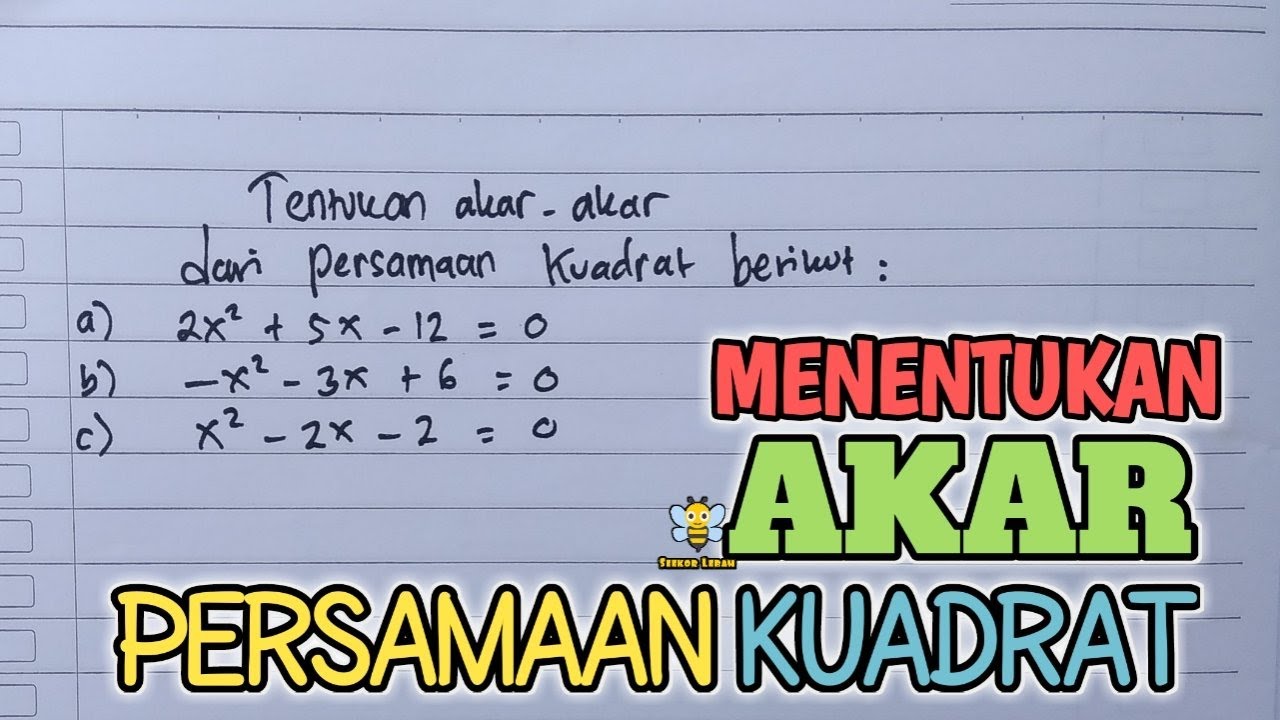 Tentukan akar-akar
dari persamaan kuadrat berikut :
a) 2x² + 5x - 12 = 0
b) -x² - 3x + 6 = 0
c) x² - 2x - 2 = 0
MENENTUKAN
AKAR
SEEKOR LEBAH
PERSAMAAN KUADRAT